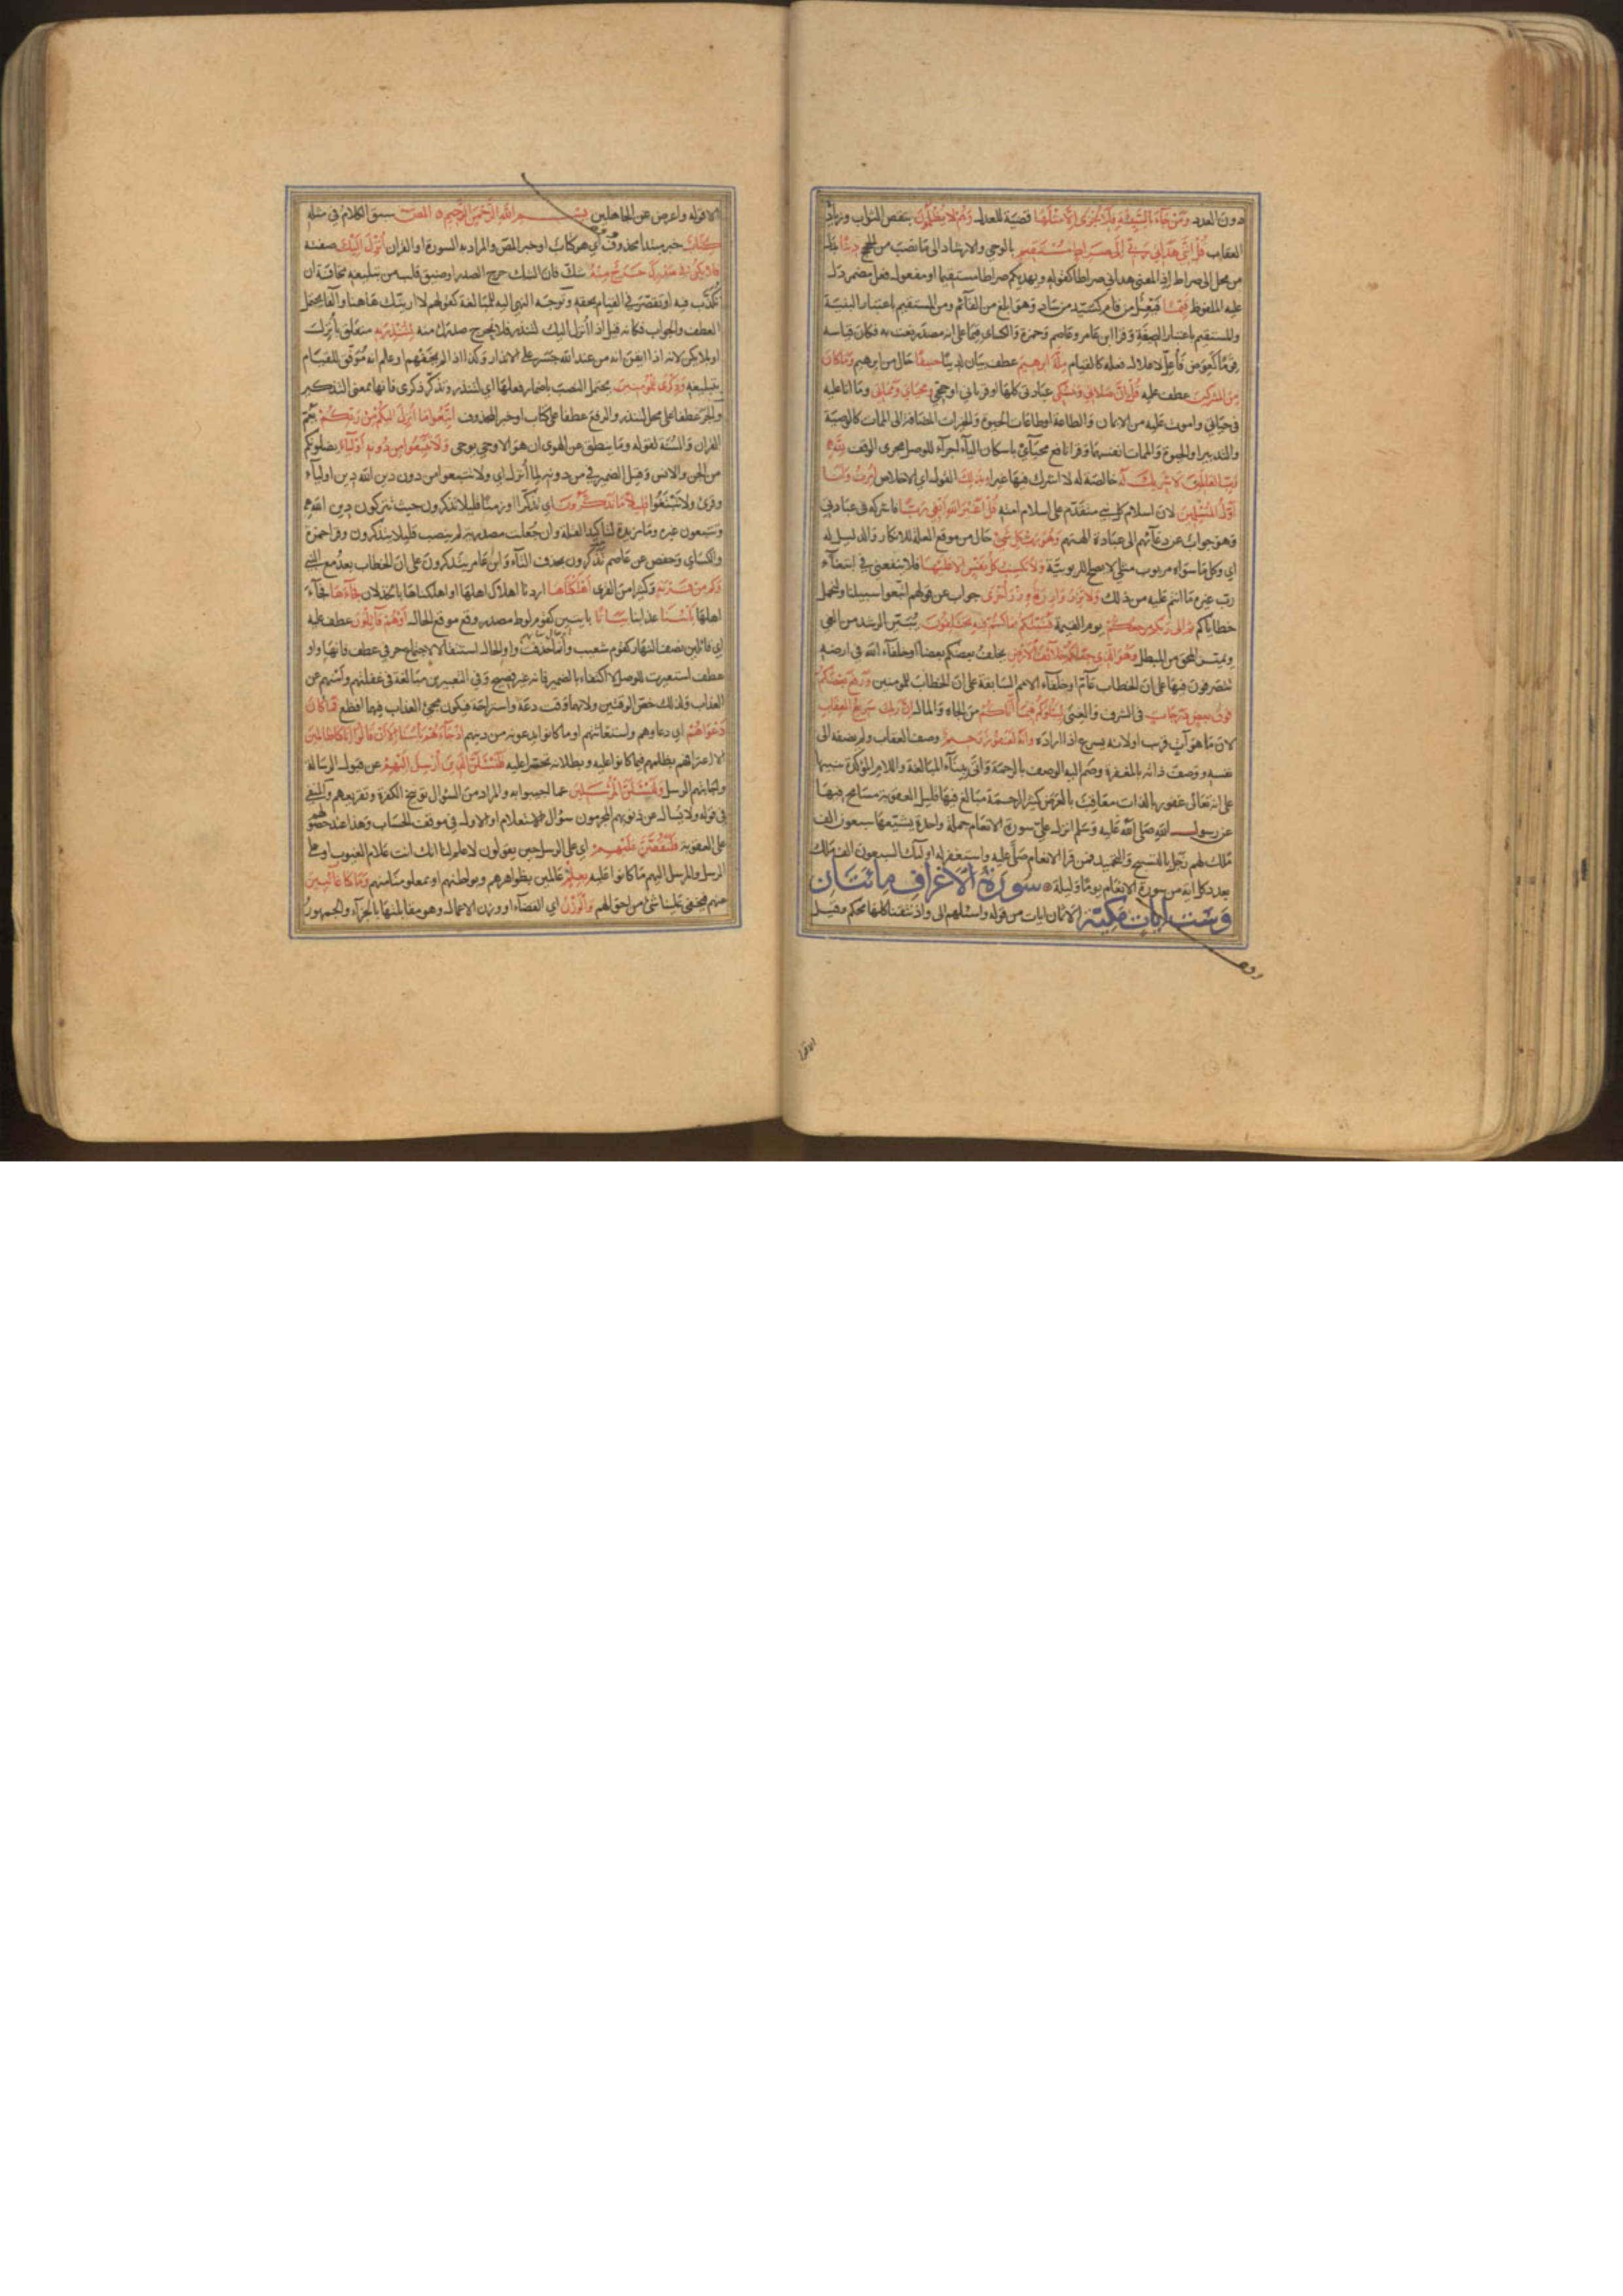 دون العدد ومن جاء بالسيئة فلا يجزى الا مثلها قضية للعدل وهم لا يظلمون بنقص الثواب وزيادة
العقاب قل انني هداني ربي الى صراط مستقيم بالوحي والارشاد الى ما نصب من الحجج دينا بدل
من محل الى صراط اذ المعنى هداني صراطا كقوله ويهديكم صراطا مستقيما او مفعول فعل مضمر دل
عليه الملفوظ قيما فيعل من قام كسيد من ساد وهو ابلغ من القائم ومن المستقيم باعتبار البنية
والمستقيم باعتبار الصيغة وقرا ابن عامر وعاصم وحمزة والكسائي قيما على انه مصدر نعت به فكان قياسه
قوما كعوض فاعل لاعلال فعله كالقيام ملة ابرهيم عطف بيان لدينا حنيفا حال من ابرهيم وما كان
من المشركين عطف عليه قل ان صلاتي ونسكي عبادتي كلها او قرباني او حجتي ومحياي ومماتي وما انا عليه
في حياتي واموت عليه من الايمان والطاعة او طاعات الحيوة والخيرات المضافة الى الممات كالوصية
والتدبير او الحيوة والممات انفسهما وقرا نافع محياي باسكان الياء اجراء للوصل مجرى الوقف لله
رب العالمين لا شريك له خالصة له لا اشرك فيها غيرا وبذلك القول او الاخلاص امرت وانا
اول المسلمين لان اسلام كل نبي متقدم على اسلام امته قل اغير الله ابغي ربا فاشركه في عبادتي
وهو جواب عن دعائهم الى عبادة الهتهم وهو رب كل شئ حال من موقع العلة للانكار والدليل له
اي وكل ما سواه مربوب مثلي لا يصلح للربوبية ولا تكسب كل نفس الا عليها فلا ينفعني في ابتغاء
رب غيره ما انتم عليه من ذلك ولا تزر وازرة وزر اخرى جواب عن قولهم اتبعوا سبيلنا ولنحمل
خطاياكم ثم الى ربكم مرجعكم يوم القيمة فينبئكم بما كنتم فيه تختلفون بتبيين الرشد من الغي
وتمييز المحق من المبطل وهو الذي جعلكم خلائف الارض يخلف بعضكم بعضا او خلفاء الله في ارضه
تتصرفون فيها على ان الخطاب عام او خلفاء الامم السابقة على ان الخطاب للمومنين ورفع بعضكم
فوق بعض درجات في الشرف والغنى ليبلوكم فيما اتاكم من الجاه والمال ان ربك سريع العقاب
لان ما هو آت قريب او لانه يسرع اذا اراده وانه لغفور رحيم وصف العقاب ولم يضفه الى
نفسه ووصف ذاته بالمغفرة وضم اليه الوصف بالرحمة واتى ببناء المبالغة واللام المؤكدة تنبيها
على انه تعالى غفور بالذات معاقب بالعرض كثير الرحمة مبالغ فيها قليل العقوبة مسامح فيها
عن رسول الله صلى الله عليه وسلم انزلت علي سورة الانعام جملة واحدة يشيعها سبعون الف
ملك لهم زجل بالتسبيح والتحميد فمن قرا الانعام صلى عليه واستغفر له اولئك السبعون الف ملك
بعدد كل اية من سورة الانعام يوما وليلة سورة الاعراف مائتان
وست ايات مكية الا ثمان ايات من قوله واسئلهم الى واذ نتقنا كلها محكم وقيل
الا قوله واعرض عن الجاهلين بسم الله الرحمن الرحيم المص سبق الكلام في مثله
كتاب خبر مبتدا محذوف اي هو كتاب او خبر المص والمراد به السورة او القران انزل اليك صفته
فلا يكن في صدرك حرج منه شك فان الشك حرج الصدر او ضيق قلب من تبليغه مخافة ان
تكذب فيه او تقصر في القيام بحقه وتوجيه النهي اليه للمبالغة كقولهم لا ارينك هاهنا والفا يحتمل
العطف والجواب فكانه قيل اذا انزل اليك لتنذر فلا يحرج صدرك منه لتنذر به متعلق بانزل
او بلا يكن لانه اذا ايقن انه من عند الله جسر على الانذار وكذا اذا لم يخفهم او علم انه موفق للقيام
بتبليغه وذكرى للمؤمنين يحتمل النصب باضمار فعلها اي لتنذر وتذكر ذكرى فانها بمعنى التذكير
والجر عطفا على محل لتنذر والرفع عطفا على كتاب او خبر المحذوف اتبعوا ما انزل اليكم من ربكم يعم
القران والسنة لقوله وما ينطق عن الهوى ان هو الا وحي يوحى ولا تتبعوا من دونه اولياء يضلونكم
من الجن والانس وقيل الضمير في من دونه لما انزل اي ولا تتبعوا من دون دين الله دين اولياء
وقرئ ولا تبتغوا قليلا ما تذكرون اي تذكرا او زمنا قليلا تذكرون حيث تتركون دين الله
وتتبعون غيره وما مزيدة لتاكيد القلة وان جعلت مصدرية لم ينتصب قليلا بتذكرون وقرا حمزة
والكسائي وحفص عن عاصم تذكرون بحذف التاء وابن عامر يتذكرون على ان الخطاب بعد مع النبي
وكم من قرية وكثيرا من القرى اهلكناها اردنا اهلاك اهلها او اهلكناها بالخذلان فجاءها فجاء
اهلها باسنا عذابنا بياتا بايتين كقوم لوط مصدر وقع موقع الحال او هم قائلون عطف عليه
اي قائلين نصف النهار كقوم شعيب وانما حذفت واو الحال استثقالا لاجتماع حرفي عطف فانها واو
عطف استعيرت للوصل لا اكتفاء بالضمير فانه غير فصيح وفي التعبيرين مبالغة في غفلتهم وامنهم عن
العذاب ولذلك خص الوقتين ولانهما وقت دعة واستراحة فيكون مجئ العذاب فيهما افظع فما كان
دعواهم اي دعاؤهم واستغاثتهم او ما كانوا يدعونه من دينهم اذ جاءهم باسنا الا ان قالوا انا كنا ظالمين
الا اعترافهم بظلمهم فيما كانوا عليه وبطلانه تحسرا عليه فلنسئلن الذين ارسل اليهم عن قبول الرسالة
واجابتهم الرسل ولنسئلن المرسلين عما اجيبوا به والمراد من السؤال توبيخ الكفرة وتقريعهم والمنفي
في قوله ولا يسال عن ذنوبهم المجرمون سؤال استعلام او الاول في موقف الحساب وهذا عند حصولهم
على العقوبة فلنقصن عليهم اي على الرسل حين يقولون لا علم لنا انك انت علام الغيوب او على
الرسل والمرسل اليهم ما كانوا عليه بعلم عالمين بظواهرهم وبواطنهم او بمعلومنا منهم وما كنا غائبين
عنهم فيخفى علينا شئ من احوالهم والوزن اي القضاء او وزن الاعمال وهو مقابلتها بالجزاء والجمهور